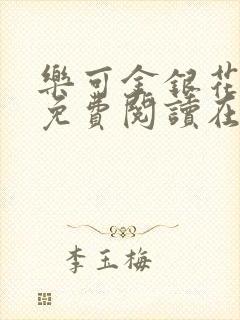 樂可金銀花
免費閱讀在
李玉梅